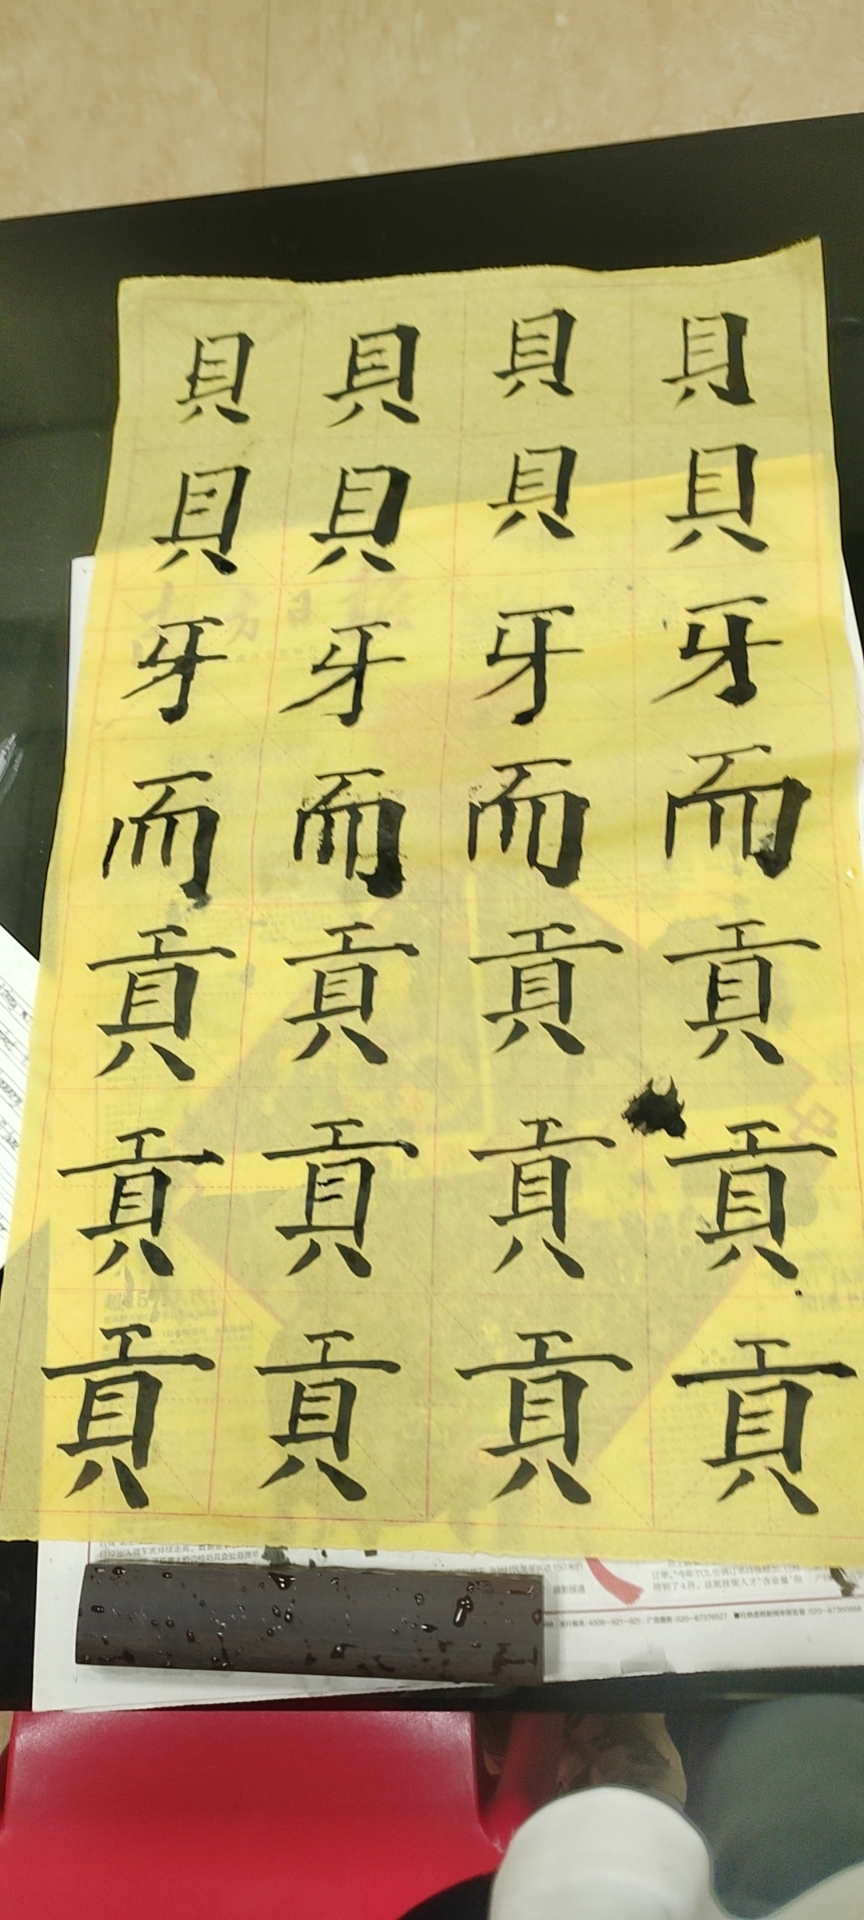 貝 貝 貝 貝
貝 貝 貝 貝
牙 牙 牙 牙
而 而 而 而
貢 貢 貢 貢
貢 貢 貢 貢
貢 貢 貢 貢